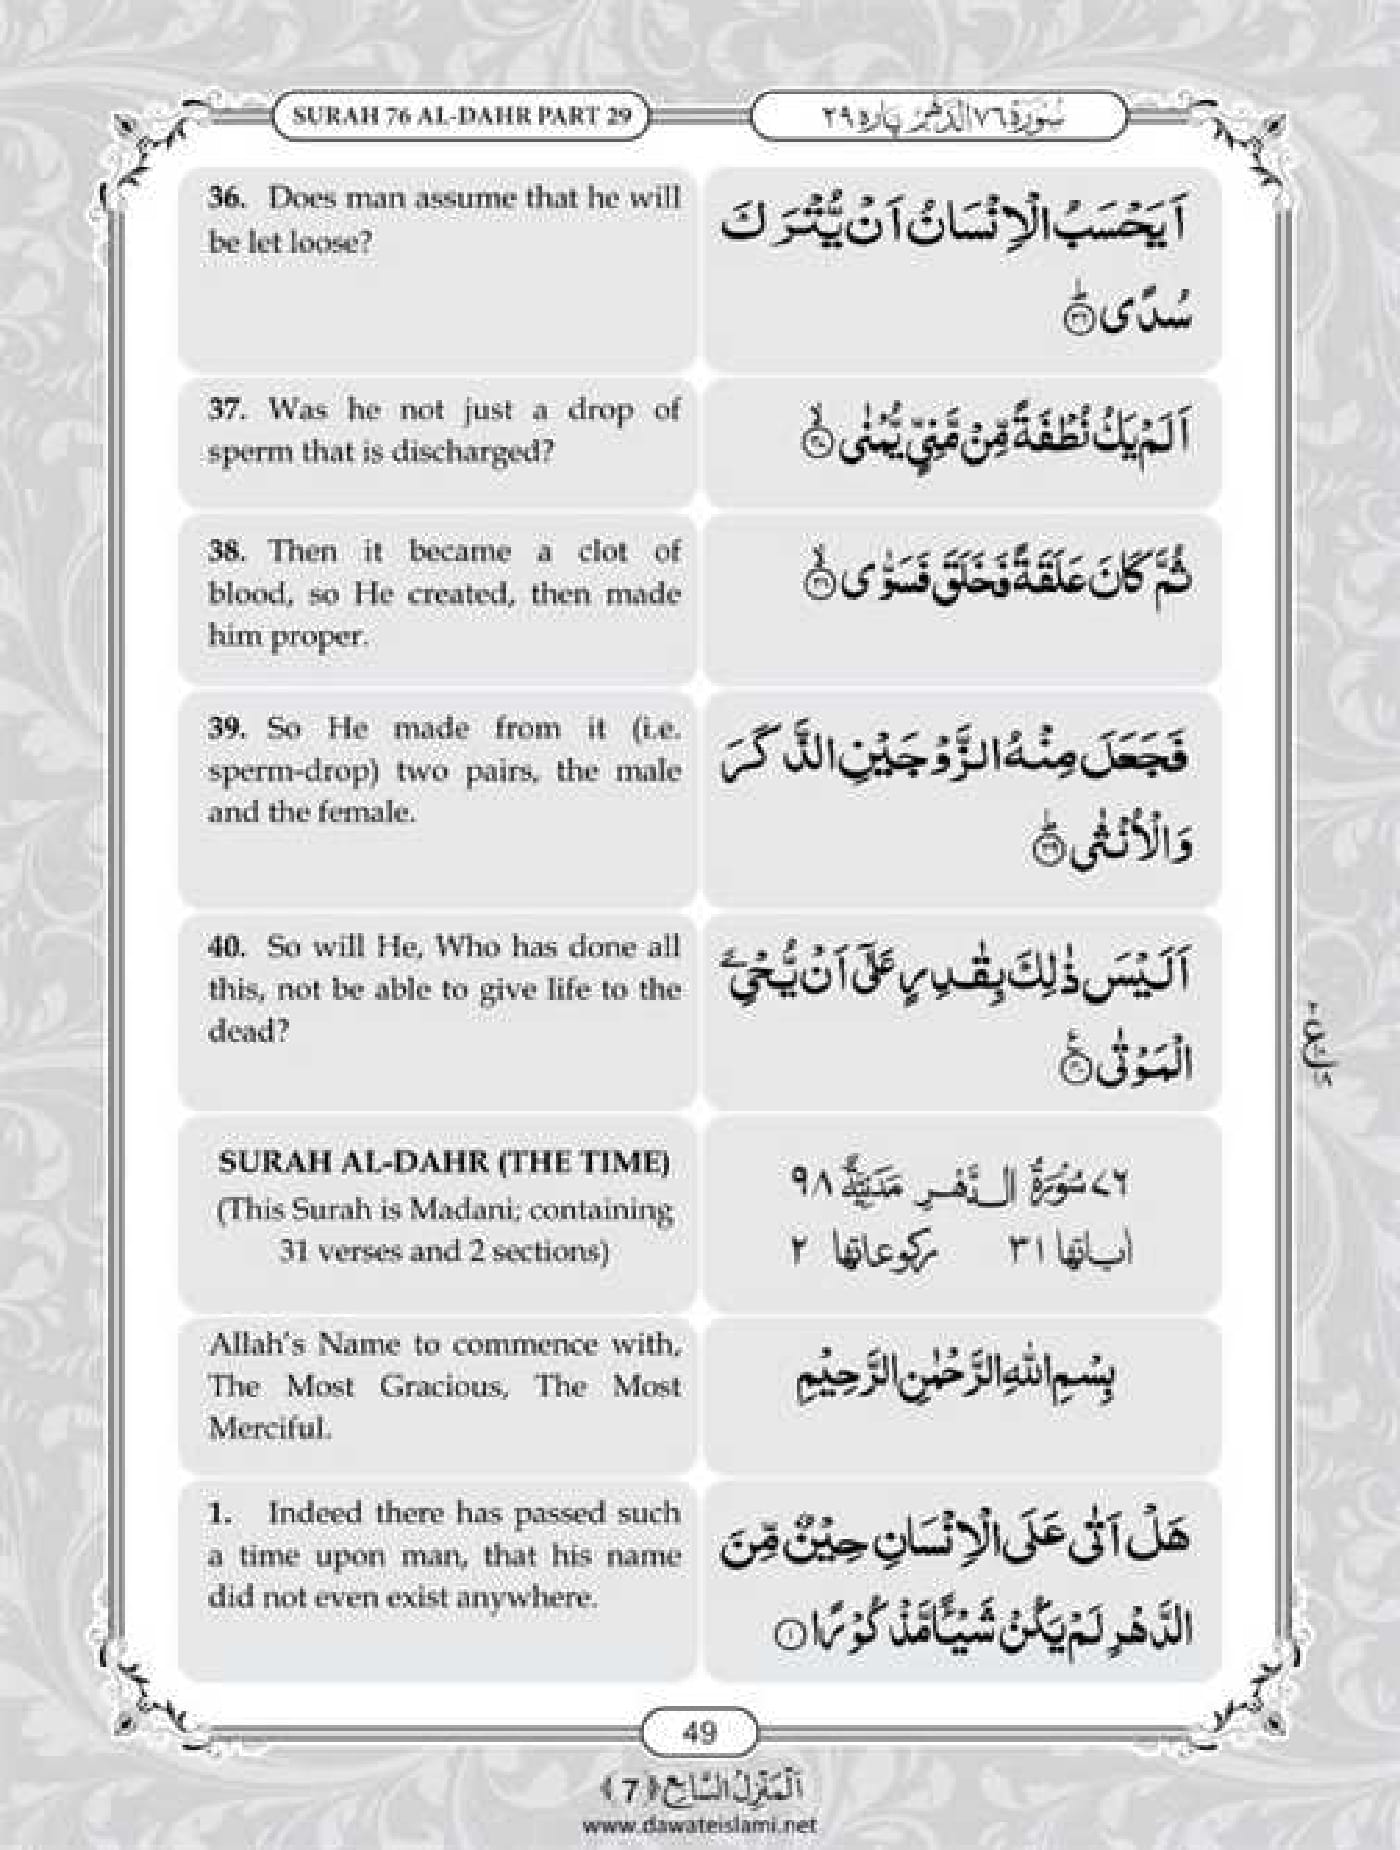 SURAH 76 AL-DAHR PART 29
سُوْرَةُ ٧٦ الدَّهْر پاره ٢٩
36. Does man assume that he will
be let loose?
اَيَحْسَبُ الْاِنْسَانُ اَنْ يُّتْرَكَ
سُدًى ؕ﴿۳۶﴾
37. Was he not just a drop of
sperm that is discharged?
اَلَمْ يَكُ نُطْفَةً مِّنْ مَّنِيٍّ يُّمْنٰى ۙ﴿۳۷﴾
38. Then it became a clot of
blood, so He created, then made
him proper.
ثُمَّ كَانَ عَلَقَةً فَخَلَقَ فَسَوّٰى ۙ﴿۳۸﴾
39. So He made from it (i.e.
sperm-drop) two pairs, the male
and the female.
فَجَعَلَ مِنْهُ الزَّوْجَيْنِ الذَّكَرَ
وَالْاُنْثٰى ؕ﴿۳۹﴾
40. So will He, Who has done all
this, not be able to give life to the
dead?
اَلَيْسَ ذٰلِكَ بِقٰدِرٍ عَلٰۤى اَنْ يُّحْيِۦَ
الْمَوْتٰى ﴿۴۰﴾
SURAH AL-DAHR (THE TIME)
(This Surah is Madani; containing
31 verses and 2 sections)
٧٦ سُوْرَةُ الدَّهْرِ مَدَنِيَّةٌ ٩٨
اٰياتها ٣١ ركوعاتها ٢
Allah's Name to commence with,
The Most Gracious, The Most
Merciful.
بِسْمِ اللهِ الرَّحْمٰنِ الرَّحِيْمِ
1. Indeed there has passed such
a time upon man, that his name
did not even exist anywhere.
هَلْ اَتٰى عَلَى الْاِنْسَانِ حِيْنٌ مِّنَ
الدَّهْرِ لَمْ يَكُنْ شَيْـًٔا مَّذْكُوْرًا ﴿۱﴾
49
اَلْمَنْزِلُ السَّابِع ﴿7﴾
www.dawateislami.net